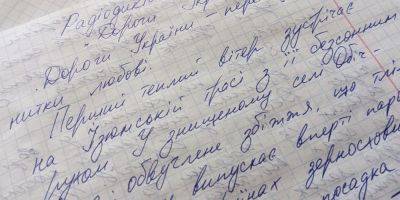 Радіодик
Дороги Ук
Дороги України – пере
нитки любові.
Перший теплий вітер зустрічає
на Ізюмській трасі з її безсонним
рухом. У знищеному селі
обвуглене збіжжя, що тлі
випускає вперті пар
їнах зерносхови
посадка